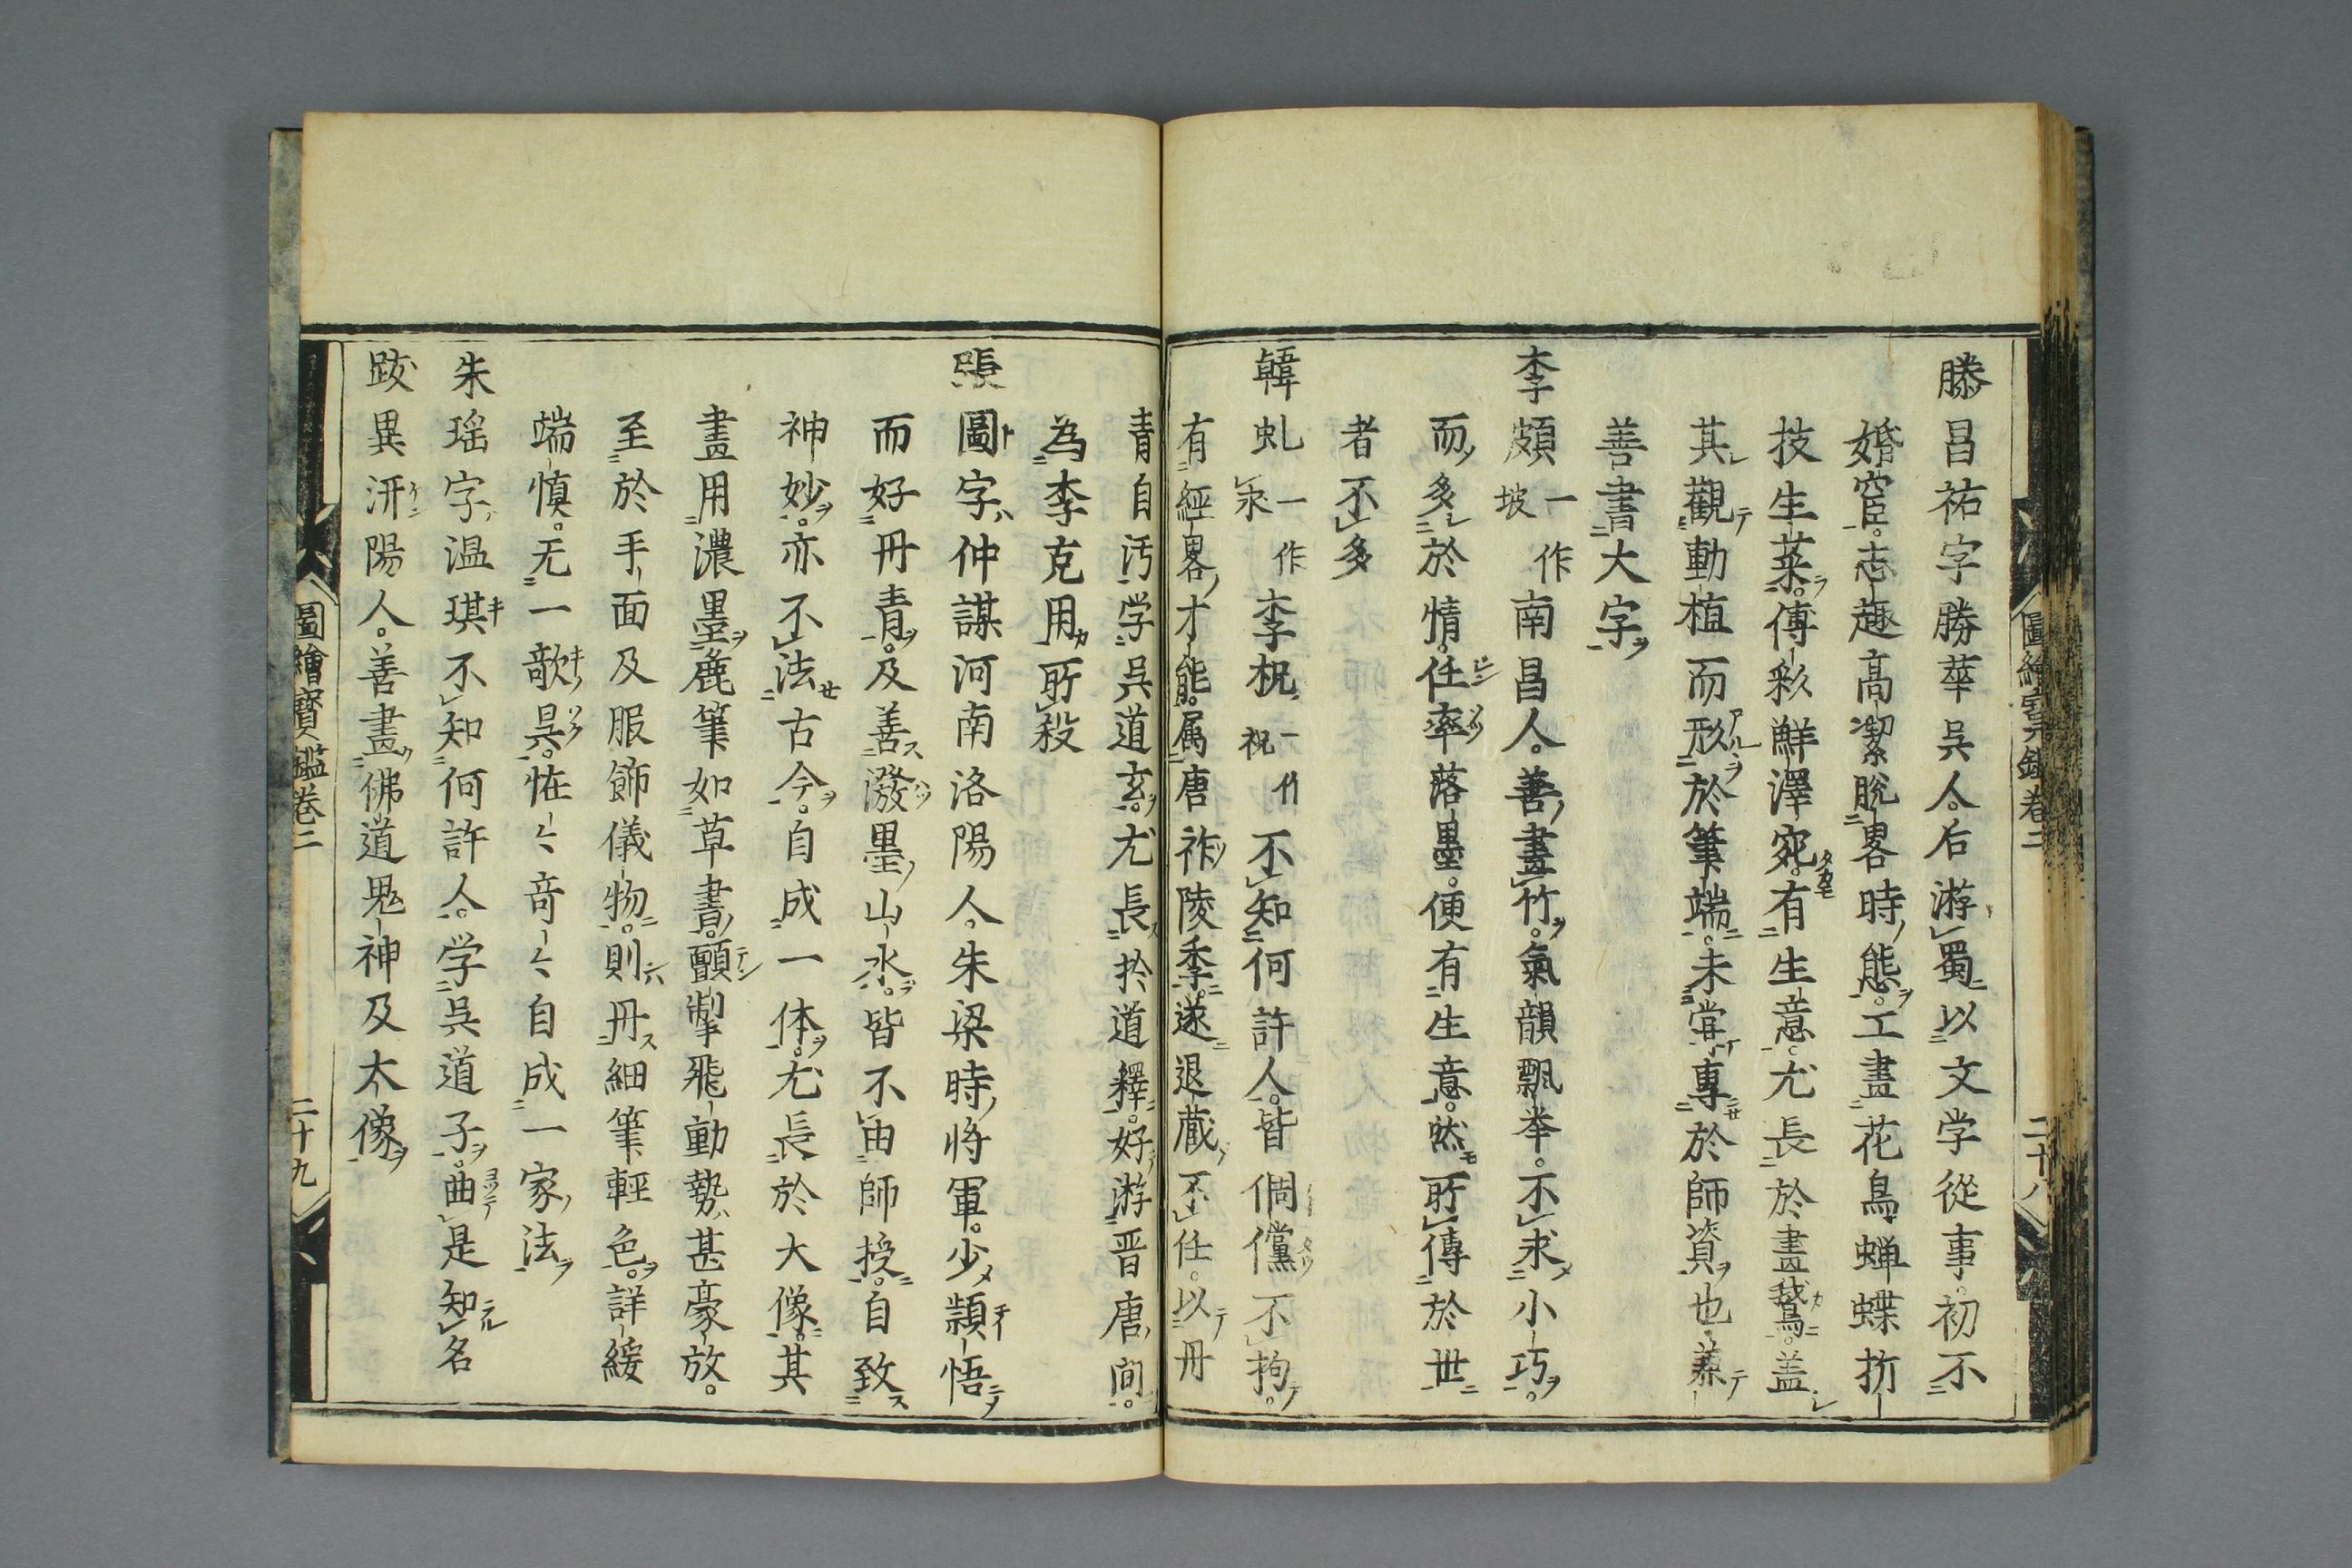 圖繪寳鑑卷二 二十八
滕昌祐字勝華吳人。后游蜀以文学從事。初不
婚宦。志趣高潔脫畧時態。工畫花鳥蝉蝶折
技生菜。傅彩鮮澤宛有生意。尤長於畫鵞。盖
其觀動植而形於筆端。未甞專於師資也兼
善書大字
李頗一作坡南昌人。善畫竹。氣韻飄举。不求小巧。
而多於情。任率落墨。便有生意。然所傳於世
者不多
韓虬一作求李柷一作祝不知何許人。皆倜儻不拘。
有經畧才能。属唐祚陵季。遂退藏不仕。以丹
青自汚学吳道玄。尤長扵道釋。好游晋唐間。
為李克用所殺
張圖字仲謀河南洛陽人。朱梁時将軍。少頴悟
而好丹青。及善潑墨山水。皆不由師授。自致
神妙。亦不法古今。自成一体。尤長於大像。其
畫用濃墨麁筆如草書。顫掣飛動勢甚豪放。
至於手面及服飾儀物。則丹細筆輕色。詳緩
端慎。无一欹吳。恠〻竒〻自成一家法
朱瑶字温琪不知何許人。学吳道子。曲是知名
跋異汧陽人。善畫佛道鬼神及大像
圖繪寳鑑卷二 二十九